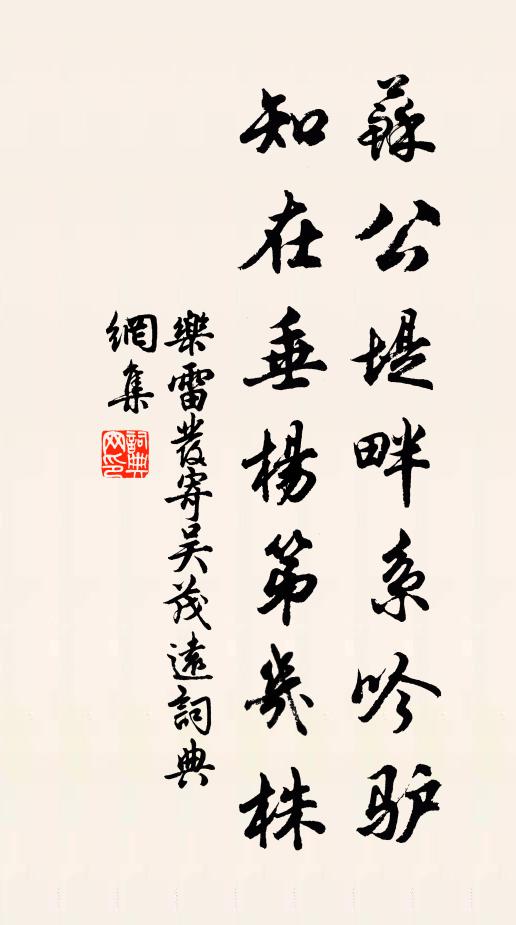 蘇公堤畔系吟驴
知在垂楊第幾株
樂雷發寄吴茂遠詞典
網集
詞典網印